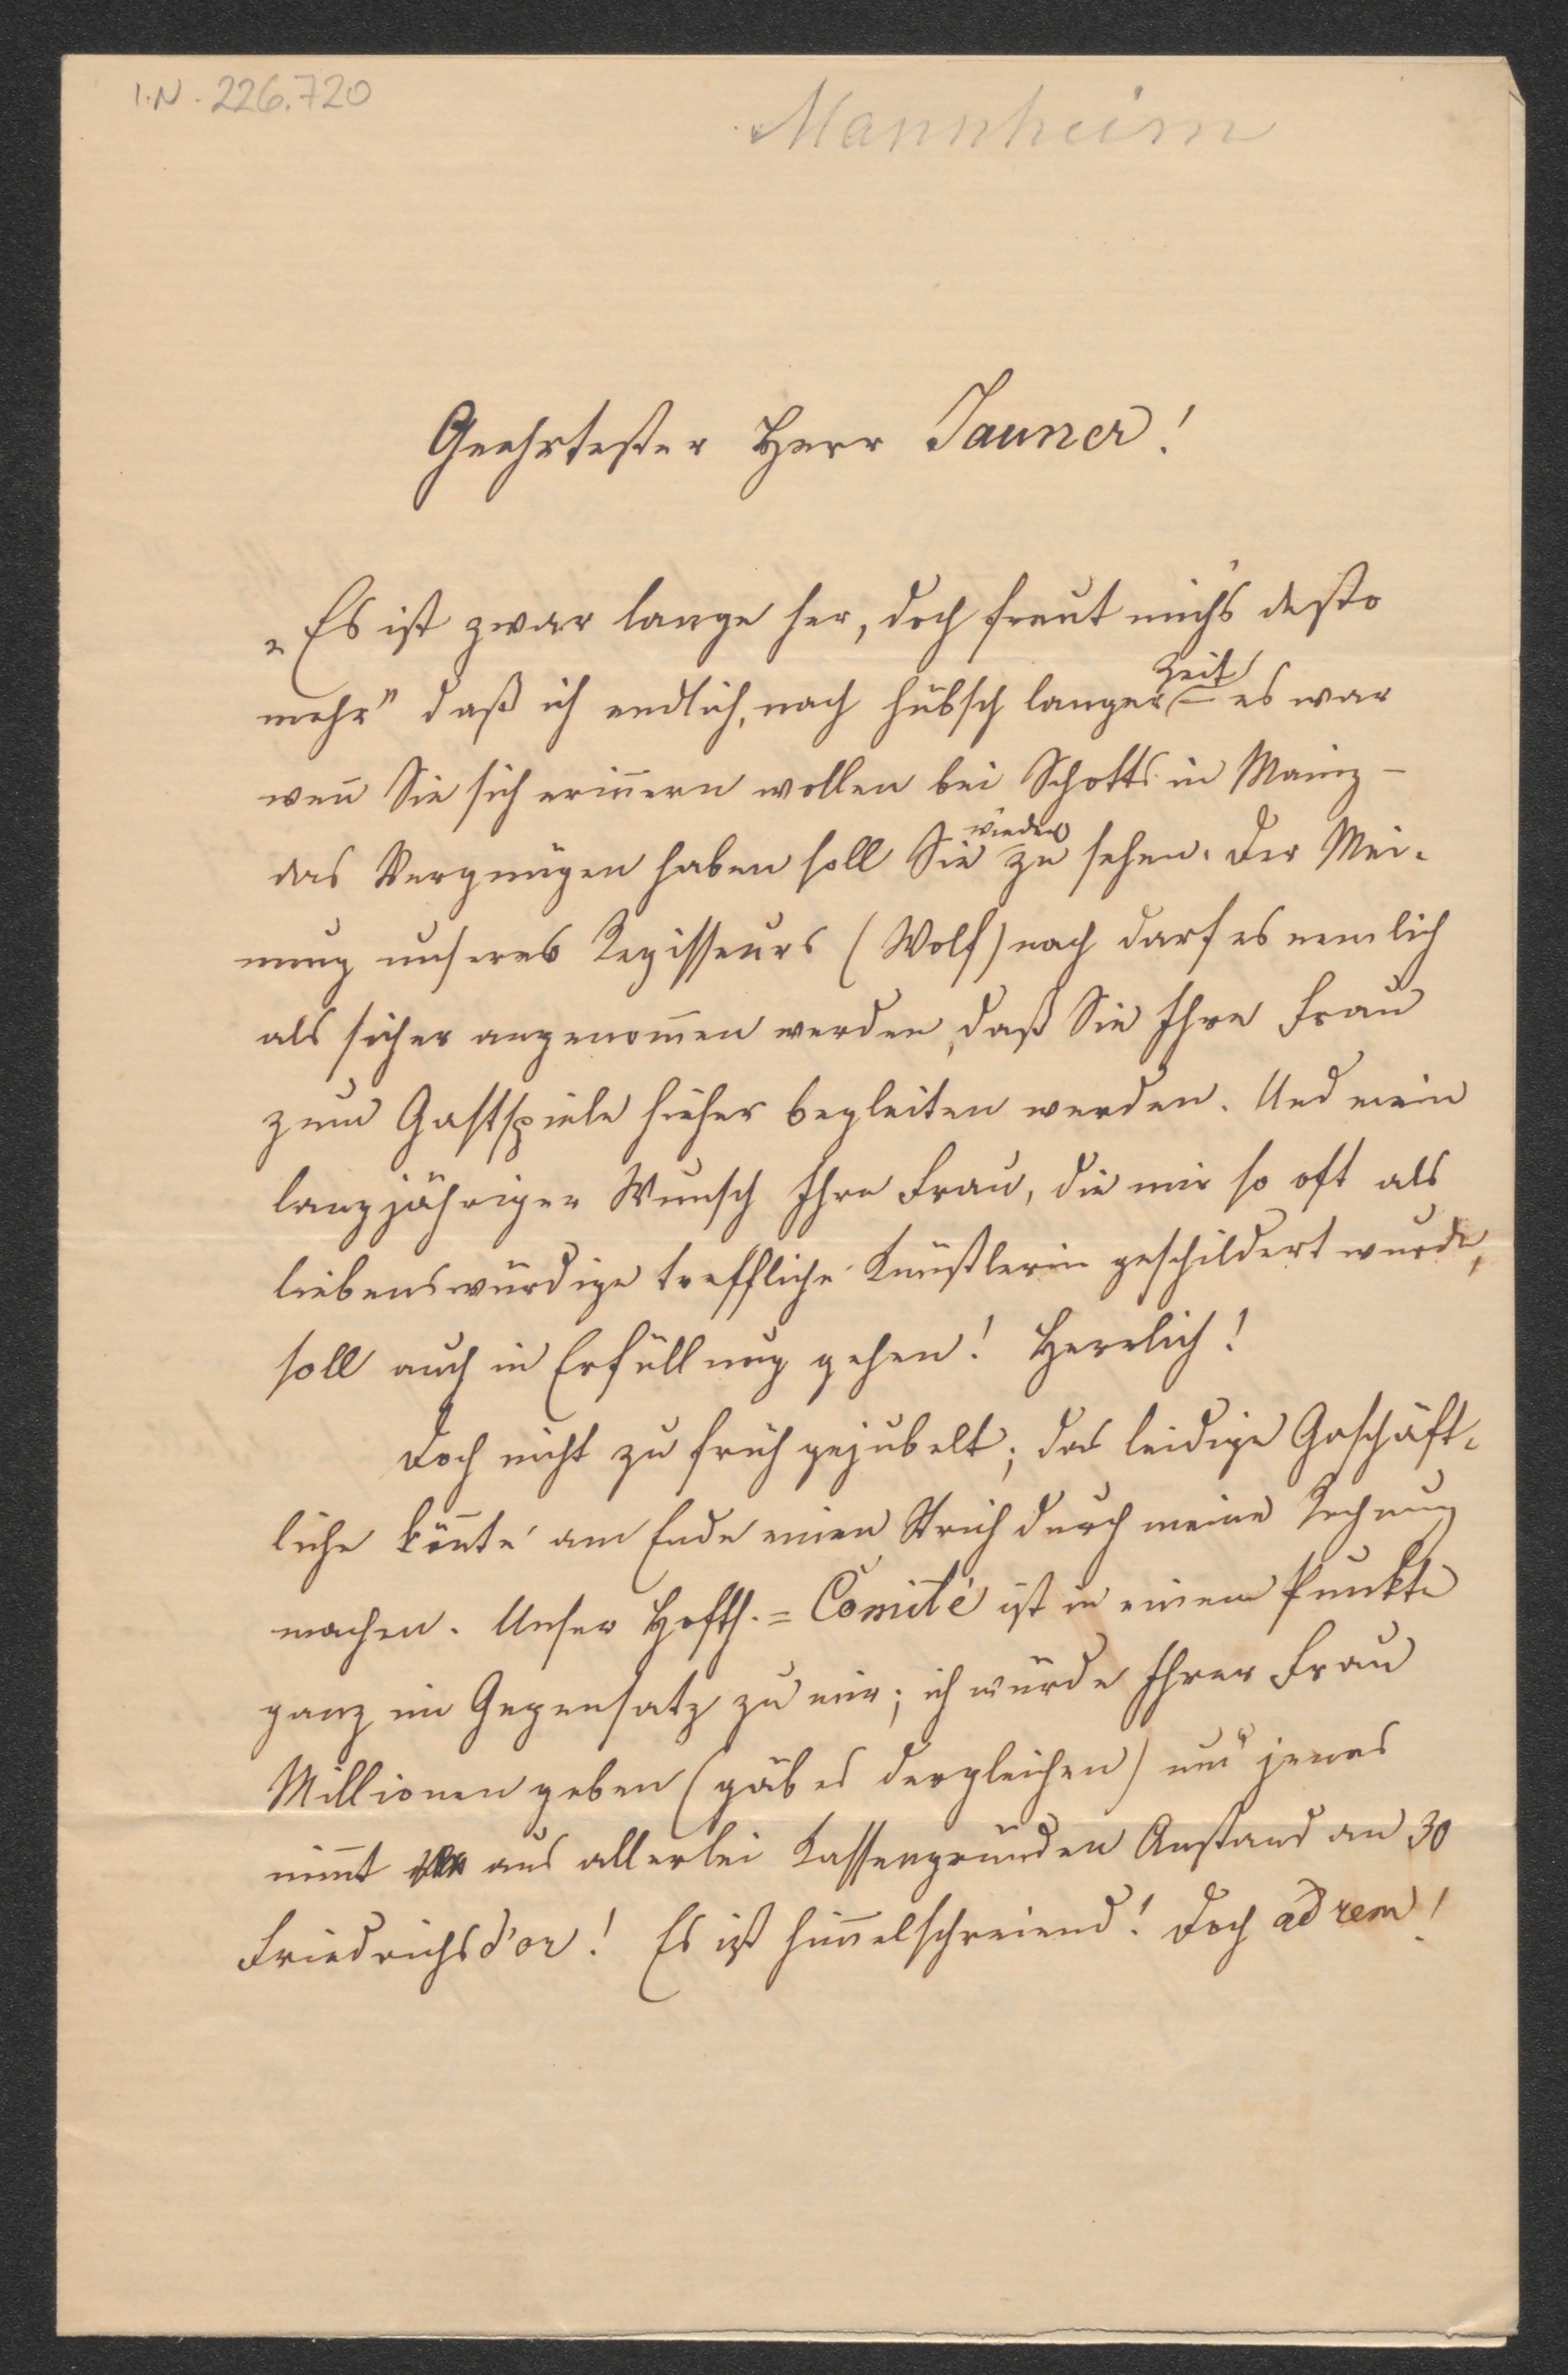 I.N. 226.720
Mannheim
Geehrtester Herr Jauner!
„Es ist zwar lange her, doch freut mich's desto
mehr" daß ich endlich, nach hübsch langer Zeit – es war
weñ Sie sich eriñern wollen bei Schotts in Mainz –
das Vergnügen haben soll Sie wieder zu sehen. Der Mei-
nung unseres Regisseurs (Wolf) nach darf es nemlich
als sicher angenom̄en werden, daß Sie Ihre Frau
zum Gastspiele hieher begleiten werden. Und mein
langjähriger Wunsch Ihre Frau, die mir so oft als
liebenswürdige treffliche Künstlerin geschildert wurde,
soll auch in Erfüllung gehen! Herrlich!
Doch nicht zu früh gejubelt; das leidige Geschäft-
liche köñte am Ende einen Strich durch meine Rechnung
machen. Unser Hofth.=Comité ist in einem Punkte
ganz im Gegensatz zu mir; ich würde Ihrer Frau
Millionen geben (gäb es dergleichen) und jenes
nim̄t aus allerlei Kassengründen Anstand an 30
Friedrichsd'or! Es ist him̄elschreiend! Doch ad rem!